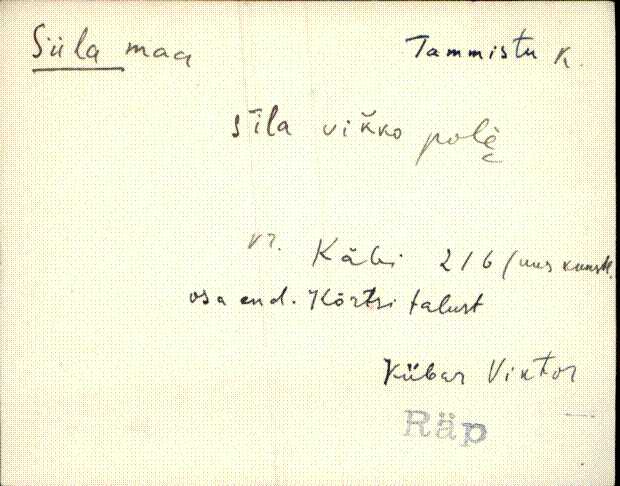 Siila maa Tammistu k.
sīla vikko polè
vr. Käbi 216 (uus
osa end. Kõrtsi talust
Kübar Viktor
Räp